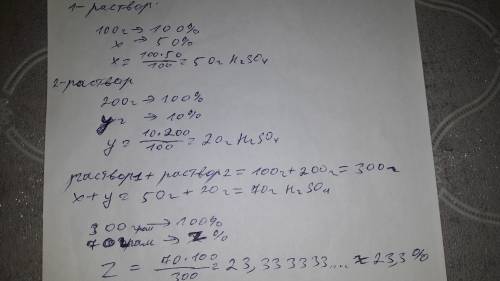 1-раствор:
100г → 100%
x → 50%
x = 100·50/100 = 50г H₂SO₄
2-раствор
200г → 100%
yг → 10%
y = 10·200/100 = 20г H₂SO₄
раствор1 + раствор2 = 100г + 200г = 300г
x + y = 50г + 20г = 70г H₂SO₄
300грам → 100%
70грам → z%
Z = 70·100/300 = 23,333333.... ≈ 23,3%